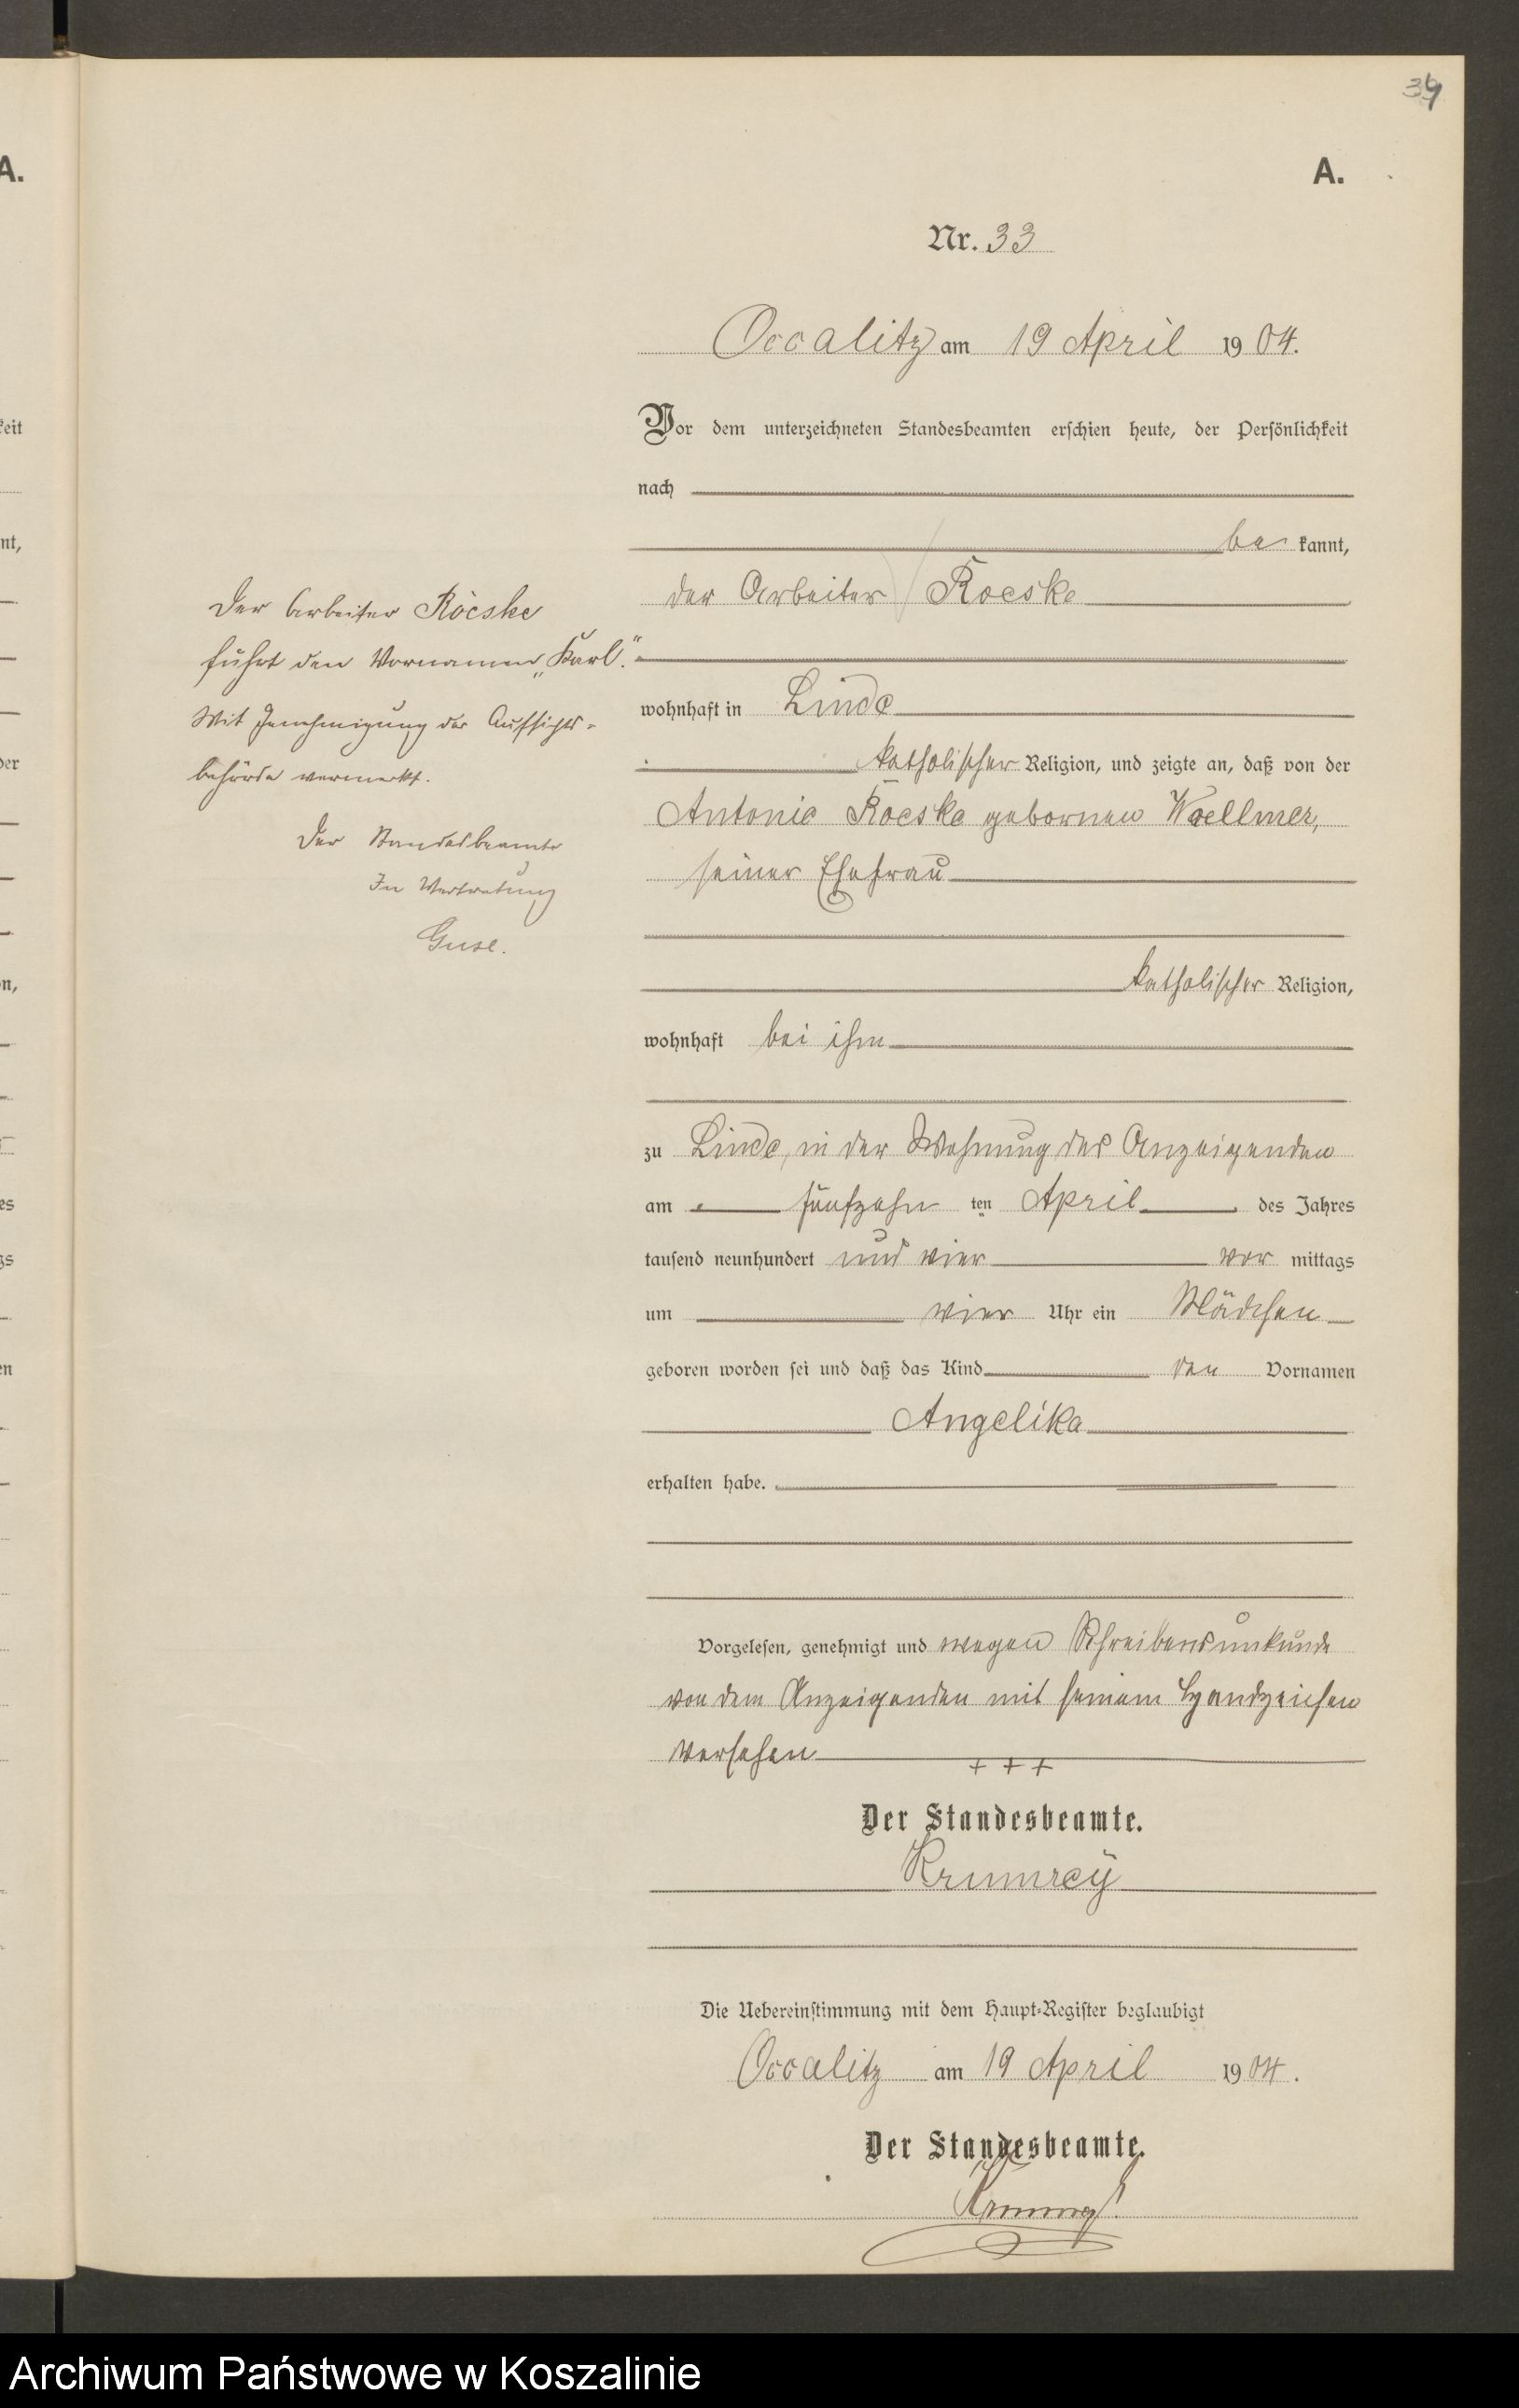 A.
A.
Nr. 33
Occalitz am 19 April 1904.
Vor dem unterzeichneten Standesbeamten erschien heute, der Persönlichkeit
nach
be kannt,
der Arbeiter Roeske
wohnhaft in Linde
katholischer Religion, und zeigte an, daß von der
Antonie Roeske gebornen Woellmer,
seiner Ehefrau
katholischer Religion,
wohnhaft bei ihm
zu Linde, in der Wohnung des Anzeigenden
am fünfzehn ten April des Jahres
tausend neunhundert und vier vor mittags
um vier Uhr ein Mädchen
geboren worden sei und daß das Kind den Vornamen
Angelika
erhalten habe.
Vorgelesen, genehmigt und wegen Schreibensunkunde
von dem Anzeigenden mit seinem Handzeichen
versehen
+ + +
Der Standesbeamte.
Krumrey
Die Uebereinstimmung mit dem Haupt-Register beglaubigt
Occalitz am 19 April 1904.
Der Standesbeamte.
Der Arbeiter Röeske
führt den Vornamen „Karl.“
Mit Genehmigung der Aufsichts-
behörde vermerkt.
Der Standesbeamte
In Vertretung
Guse.
Archiwum Państwowe w Koszalinie